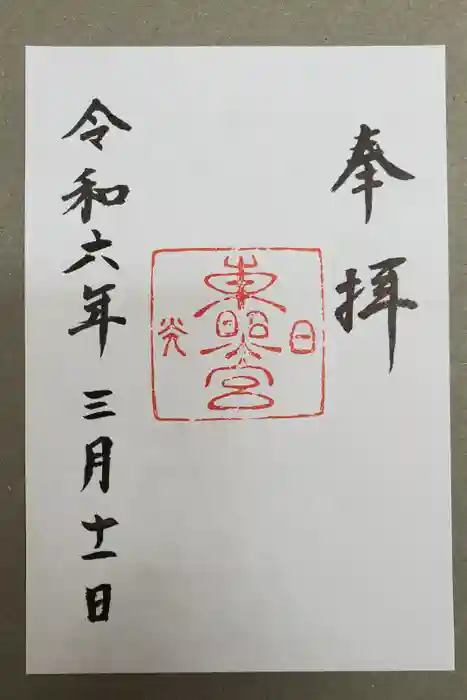 奉拝
日
東照宮
光
令和六年 三月十一日